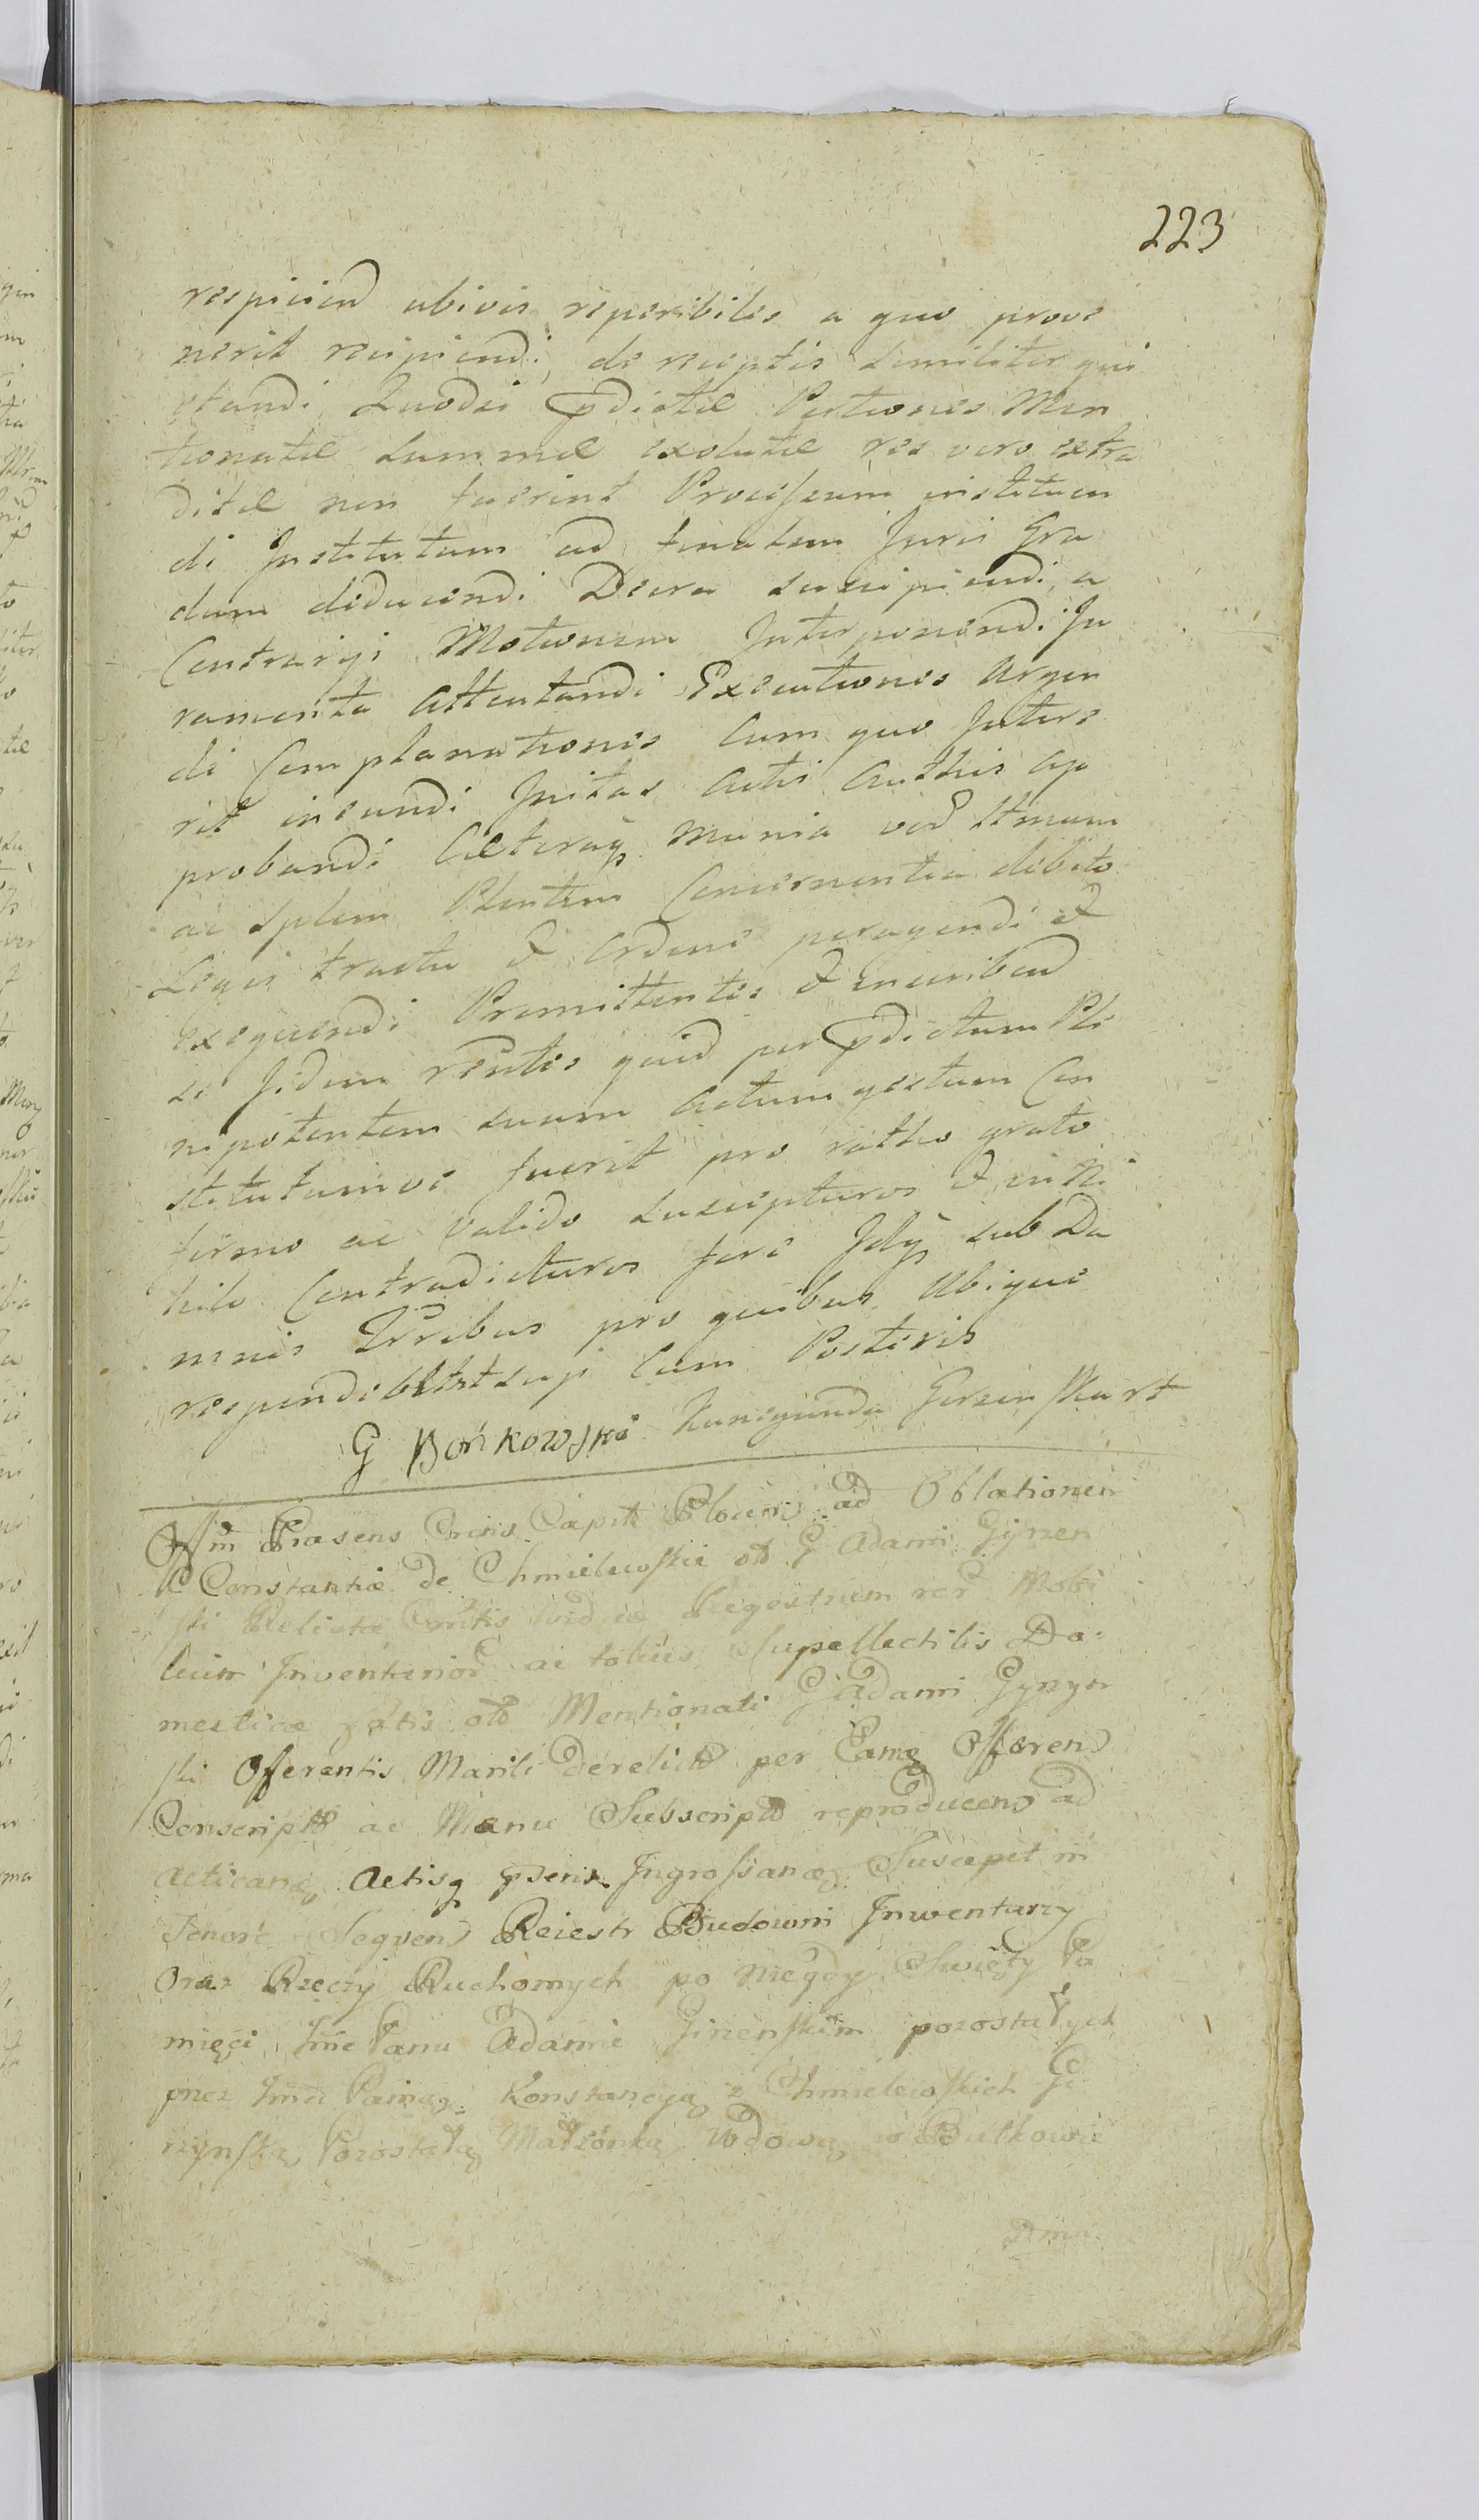 223
respiciend ubivis reperibiles a quo prove
nerit recipiendi, de receptis similiter qui
etandi Quodsi pdictæ Portiones Men
tionatæ Summæ exolutæ res vero extra
ditæ non fuerint Processum instituen
di Institutum ad finalem Juris Gra
dum deducendi Decra suscipiendi, a
Contrariji Motionem Interponendi Ju
ramenta Attentandi Executiones Urgen
di Complanationes Cum quo Intere
rit ineundi Initas Actis Authis ap
probandi Cæteraq munia
ac splem Plentem Concernentia debito
Legis tractu & Ordine peragendi &
exequendi Promittentes &
se fidem quid per pdictum Ple
nipotentem suum Actum gestum Con
stitutumve fuerit pro ratho grato
firmo ac valido suscepturos & in Ni
hilo Contradicturos fore sub Da
mnis pro quibus Ubique
Cum Posteris
G Bońkowski Kunegunda
Offm Præsens Crens Capitt Plocen ad Oblationem
G Constantiæ de Chmielewskie olb G Adami Gijrzen
ski Relictæ Viduæ Regestrum rer Mobi
lium Inventarior ac totius Supellectilis Do-
mesticæ olb Mentionati G Adami Gyrzyn
ski Offerentis Mariti derelictt per Eamq Offeren
Conscriptt ac Manu Subscriptt reproducen ad
Acticanq Actisq pseris Ingrossanq Suscepit in
Tenore Sequen Reiestr Budowni Inwentarzy
Oraz Rzeczy Ruchomych po Niegdy Swięty Pa
mięci Jmc Panu Adamie Girzenskim pozostałych
przez Jmci Panią Konstancyą z Chmielewskich Gi
rzynską Pozostałą Małżonką Wdową w Bulkowie